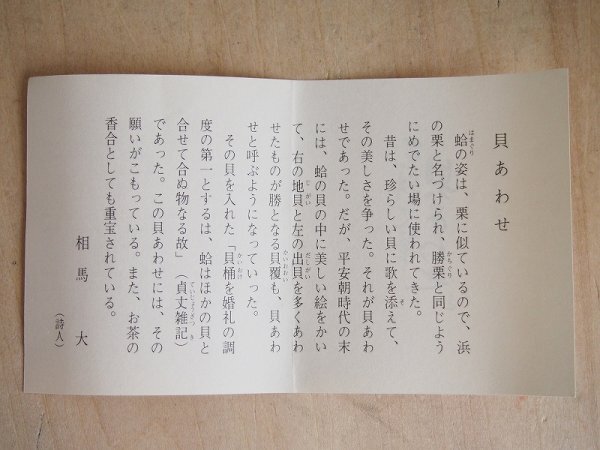 貝あわせ
蛤の姿は、栗に似ているので、浜
の栗と名づけられ、勝栗と同じよう
にめでたい場に使われてきた。
昔は、珍らしい貝に歌を添えて、
その美しさを争った。それが貝あわ
せであった。だが、平安朝時代の末
には、蛤の貝の中に美しい絵をかい
て、右の地貝と左の出貝を多くあわ
せたものが勝となる貝覆も、貝あわ
せと呼ぶようになっていった。
その貝を入れた「貝桶を婚礼の調
度の第一とするは、蛤はほかの貝と
合せて合ぬ物なる故」（貞丈雑記）
であった。この貝あわせには、その
願いがこもっている。また、お茶の
香合としても重宝されている。
相馬大
（詩人）